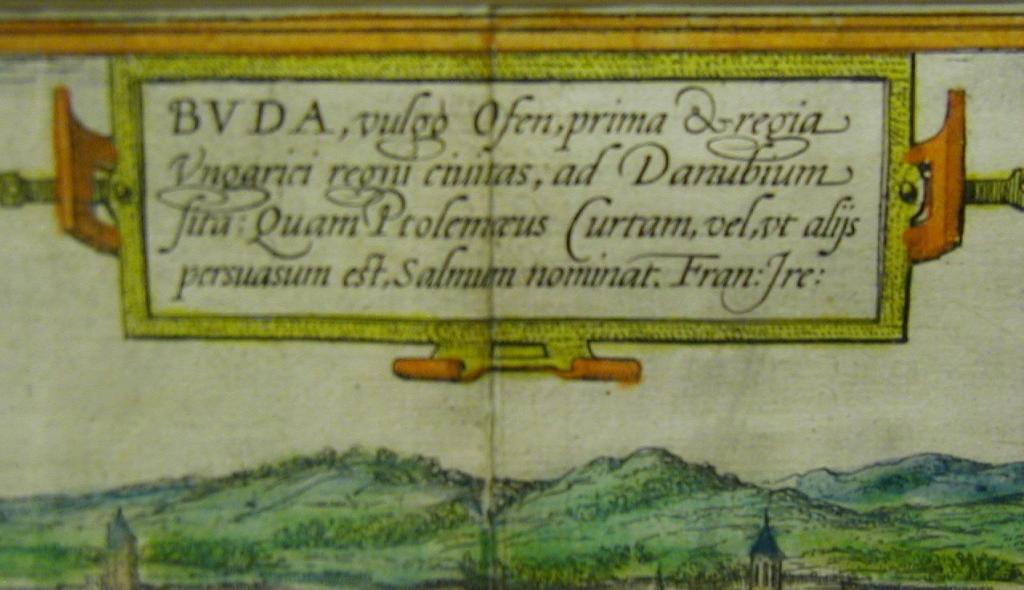 BVDA, vulgò Ofen, prima & regia
Vngarici regni ciuitas, ad Danubium
sita: Quam Ptolemæus Curtam, vel, vt alijs
persuasum est, Salmum nominat. Fran: Ire: